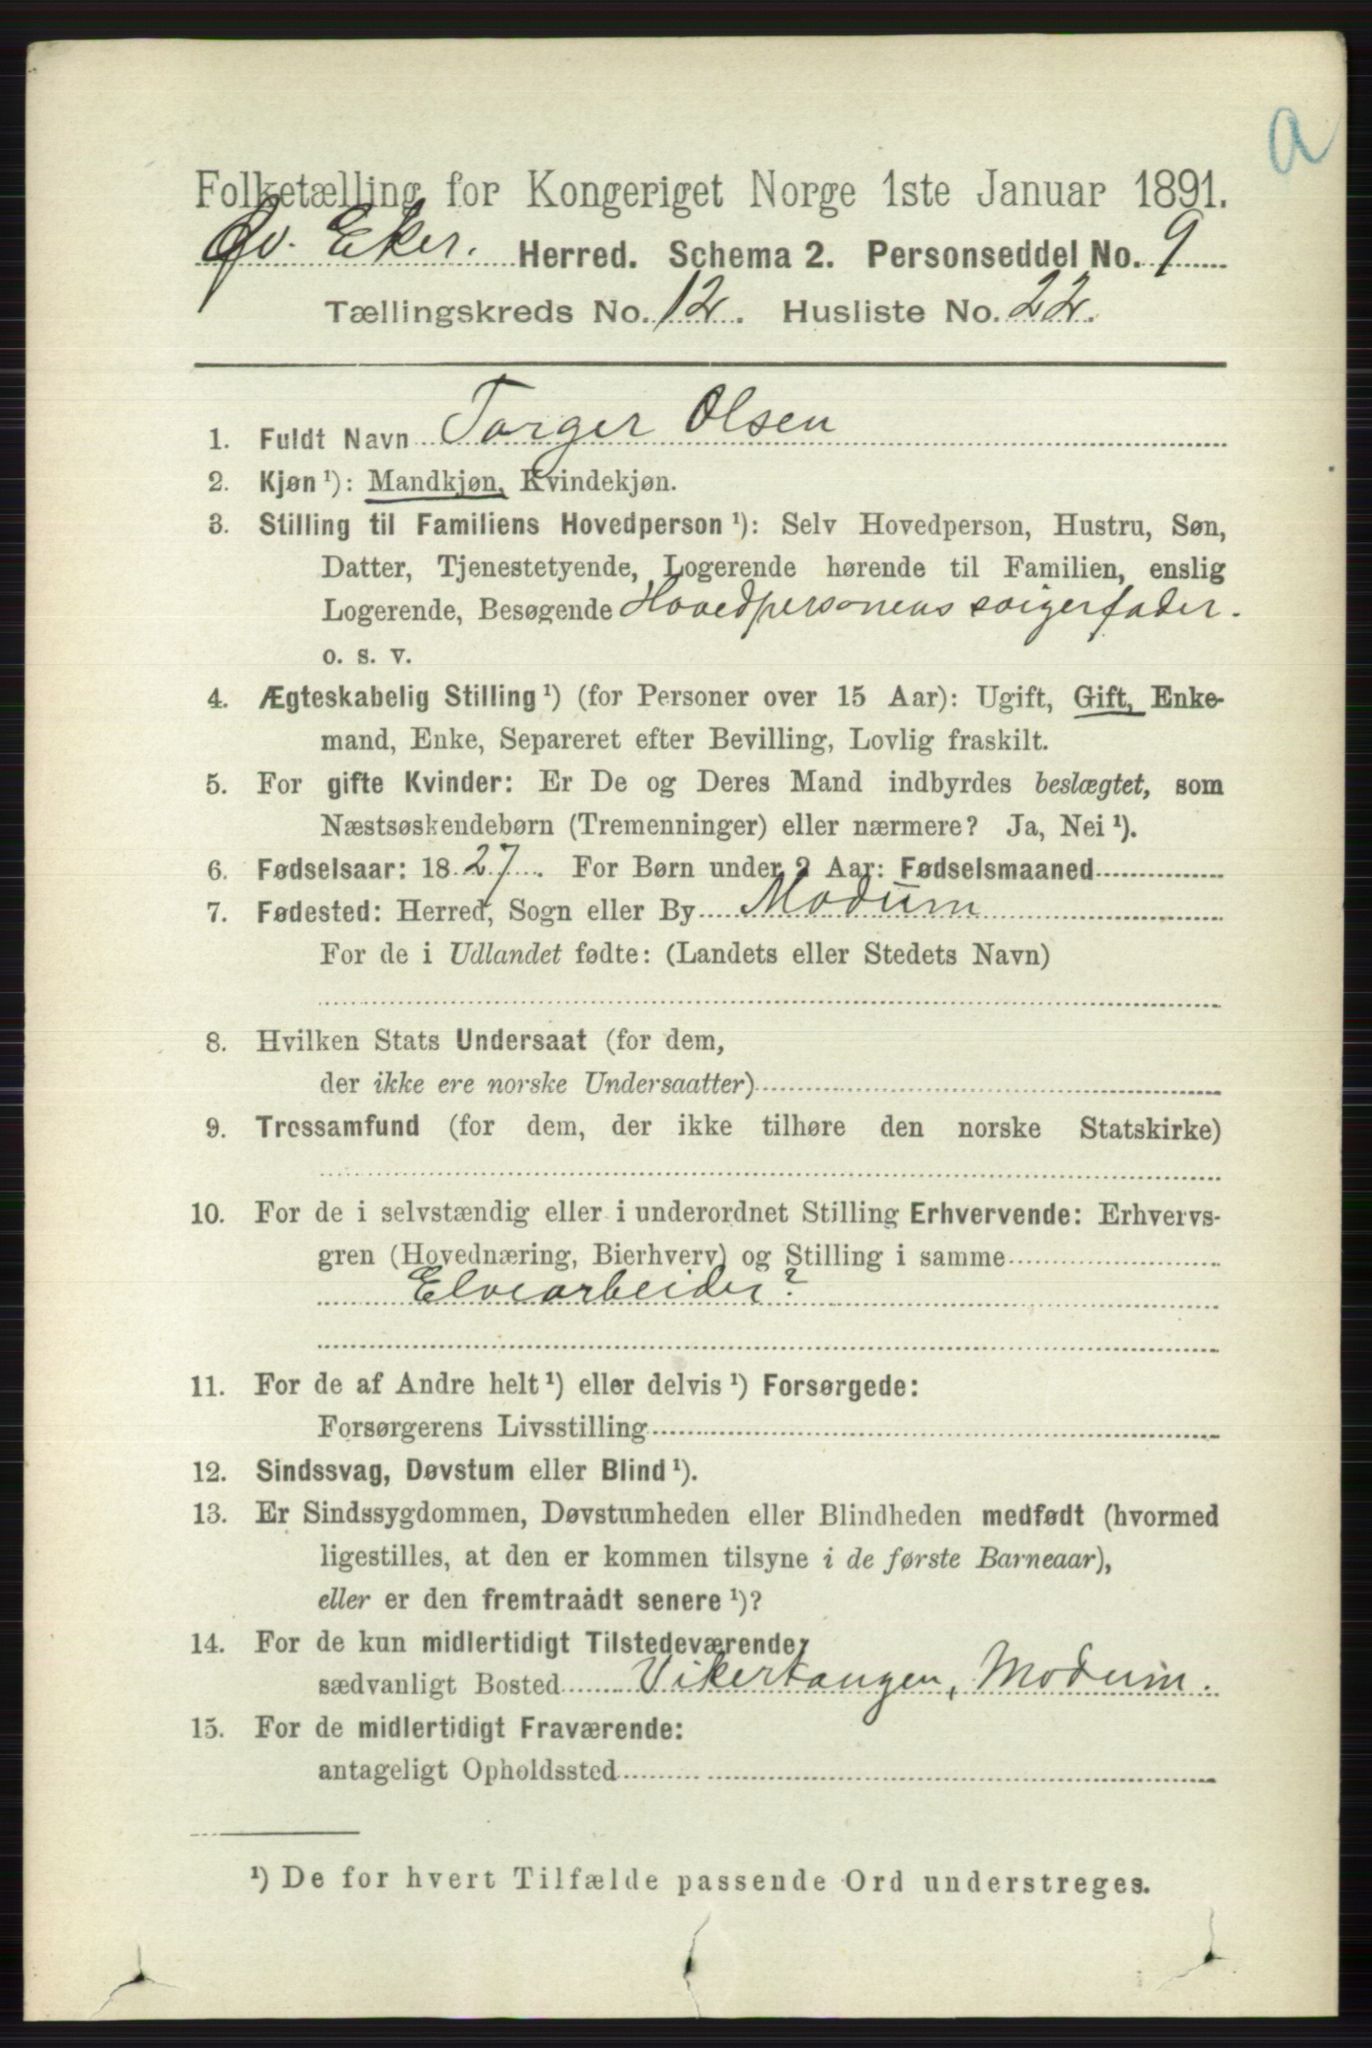 a
Folketælling for Kongeriget Norge 1ste Januar 1891.
Øv. Eker. Herred. Schema 2. Personseddel No. 9
Tællingskreds No. 12. Husliste No. 22.
1. Fuldt Navn Torger Olsen
2. Kjøn ¹): Mandkjøn, Kvindekjøn.
3. Stilling til Familiens Hovedperson ¹): Selv Hovedperson, Hustru, Søn,
Datter, Tjenestetyende, Logerende hørende til Familien, enslig
Logerende, Besøgende Hovedpersonens svigerfader.
o. s. v.
4. Ægteskabelig Stilling ¹) (for Personer over 15 Aar): Ugift, Gift, Enke-
mand, Enke, Separeret efter Bevilling, Lovlig fraskilt.
5. For gifte Kvinder: Er De og Deres Mand indbyrdes beslægtet, som
Næstsøskendebørn (Tremenninger) eller nærmere? Ja, Nei ¹).
6. Fødselsaar: 1827. For Børn under 2 Aar: Fødselsmaaned
7. Fødested: Herred, Sogn eller By Modum
For de i Udlandet fødte: (Landets eller Stedets Navn)
8. Hvilken Stats Undersaat (for dem,
der ikke ere norske Undersaatter)
9. Trossamfund (for dem, der ikke tilhøre den norske Statskirke)
10. For de i selvstændig eller i underordnet Stilling Erhvervende: Erhvervs-
gren (Hovednæring, Bierhverv) og Stilling i samme
Elvearbeider?
11. For de af Andre helt ¹) eller delvis ¹) Forsørgede:
Forsørgerens Livsstilling
12. Sindssvag, Døvstum eller Blind ¹).
13. Er Sindssygdommen, Døvstumheden eller Blindheden medfødt (hvormed
ligestilles, at den er kommen tilsyne i de første Barneaar),
eller er den fremtraådt senere ¹)?
14. For de kun midlertidigt Tilstedeværende:
sædvanligt Bosted Vikertangen, Modum.
15. For de midlertidigt Fraværende:
antageligt Opholdssted
¹) De for hvert Tilfælde passende Ord understreges.